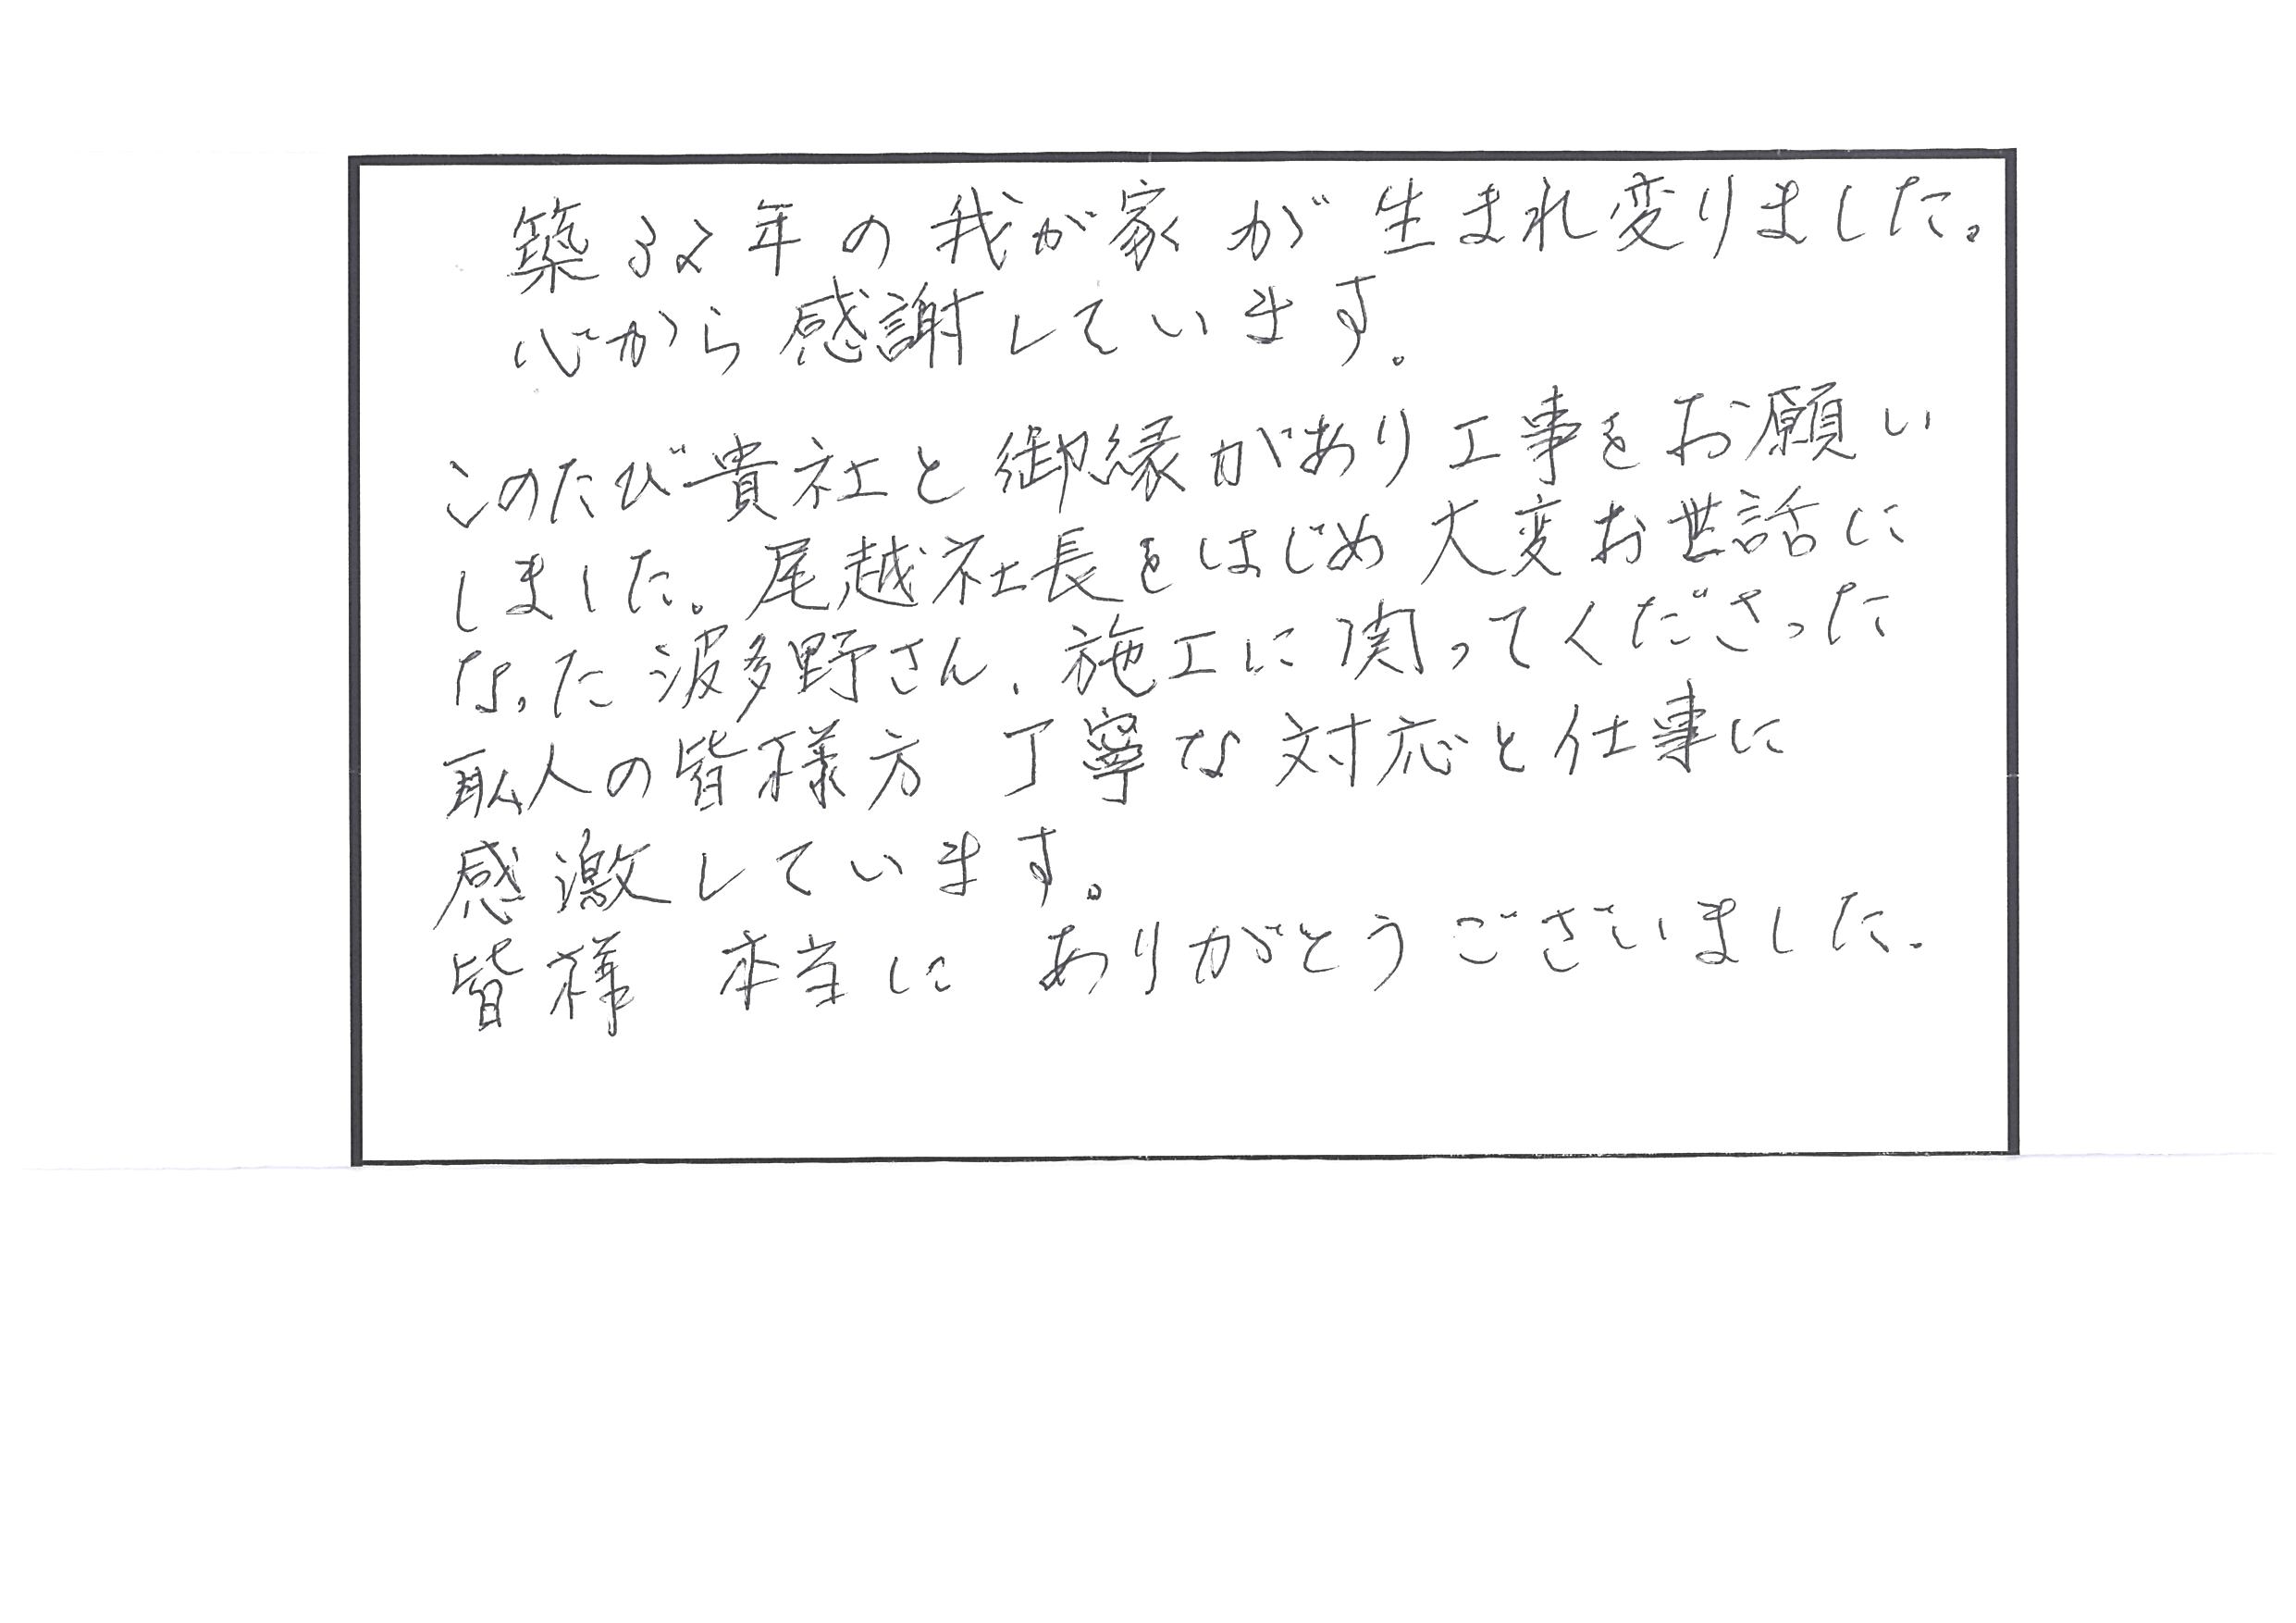 築32年の我が家が生まれ変りました。
心から感謝しています。
このたび貴社と御縁があり工事をお願い
しました。尾越社長をはじめ大変お世話に
なった波多野さん、施工に関ってくださった
耺人の皆様方 丁寧な対応と仕事に
感激しています。
皆様 本当に ありがとうございました。